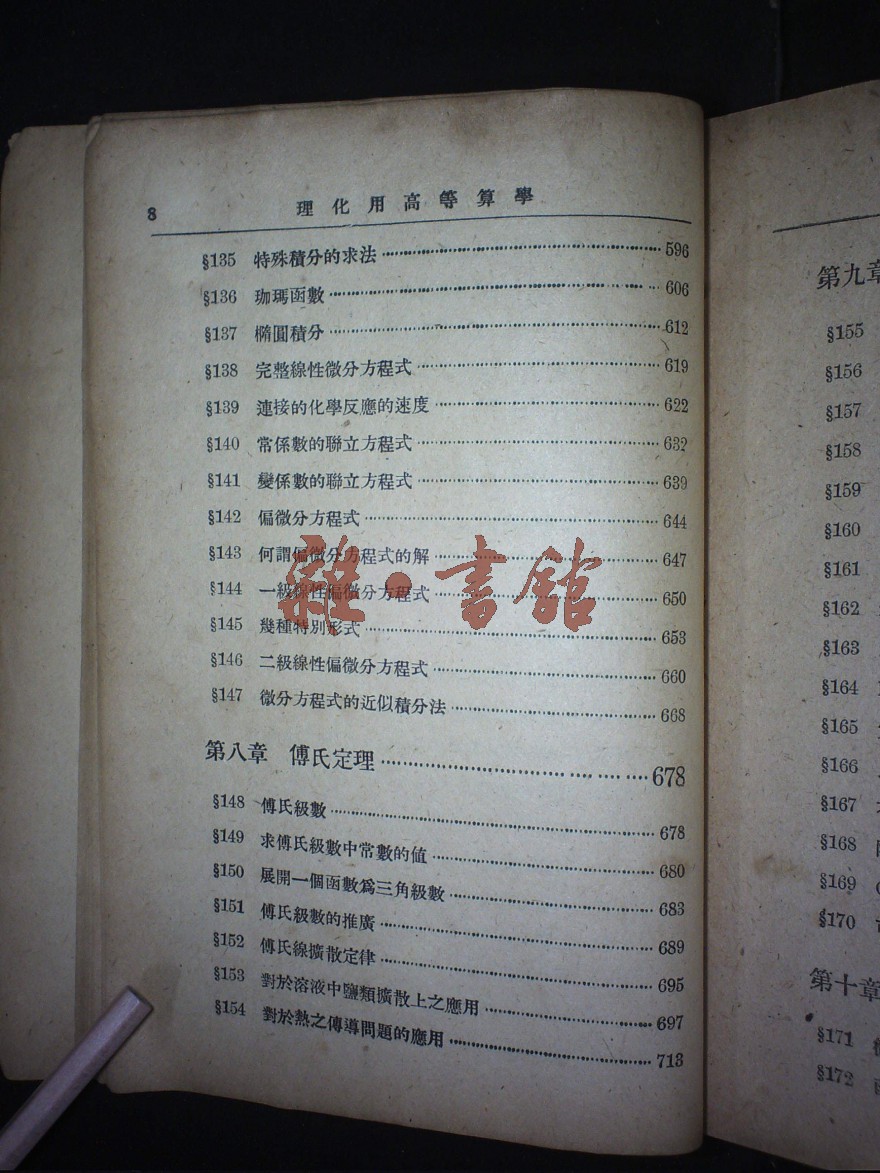 8 理化用高等算學
§135 特殊積分的求法 596
§136 珈瑪函數 606
§137 橢圓積分 612
§138 完整線性微分方程式 619
§139 連接的化學反應的速度 622
§140 常係數的聯立方程式 632
§141 變係數的聯立方程式 639
§142 偏微分方程式 644
§143 何謂偏微分方程式的解 647
§144 一級線性偏微分方程式 650
§145 幾種特別形式 653
§146 二級線性偏微分方程式 660
§147 微分方程式的近似積分法 668
第八章 傅氏定理 678
§148 傅氏級數 678
§149 求傅氏級數中常數的値 680
§150 展開一個函數爲三角級數 683
§151 傅氏級數的推廣 689
§152 傅氏線擴散定律 695
§153 對於溶液中鹽類擴散上之應用 697
§154 對於熱之傳導問題的應用 713
雜·書館
第九章
§155
§156
§157
§158
§159
§160
§161
§162
§163
§164
§165
§166
§167
§168
§169
§170
第十章
§171
§172